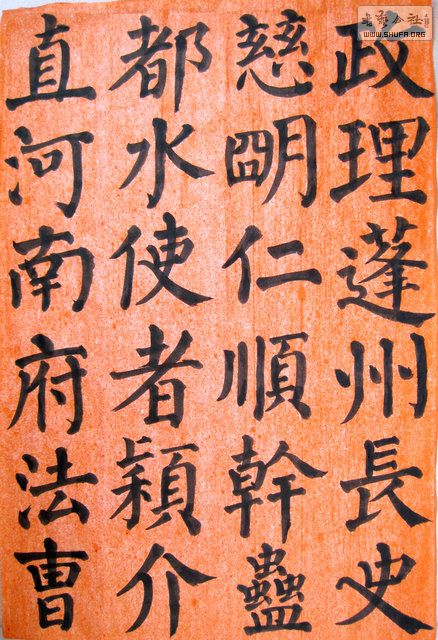 政理蓬州長史
慈明仁順幹蠱
都水使者穎介
直河南府法曹
WWW.SHUFA.ORG